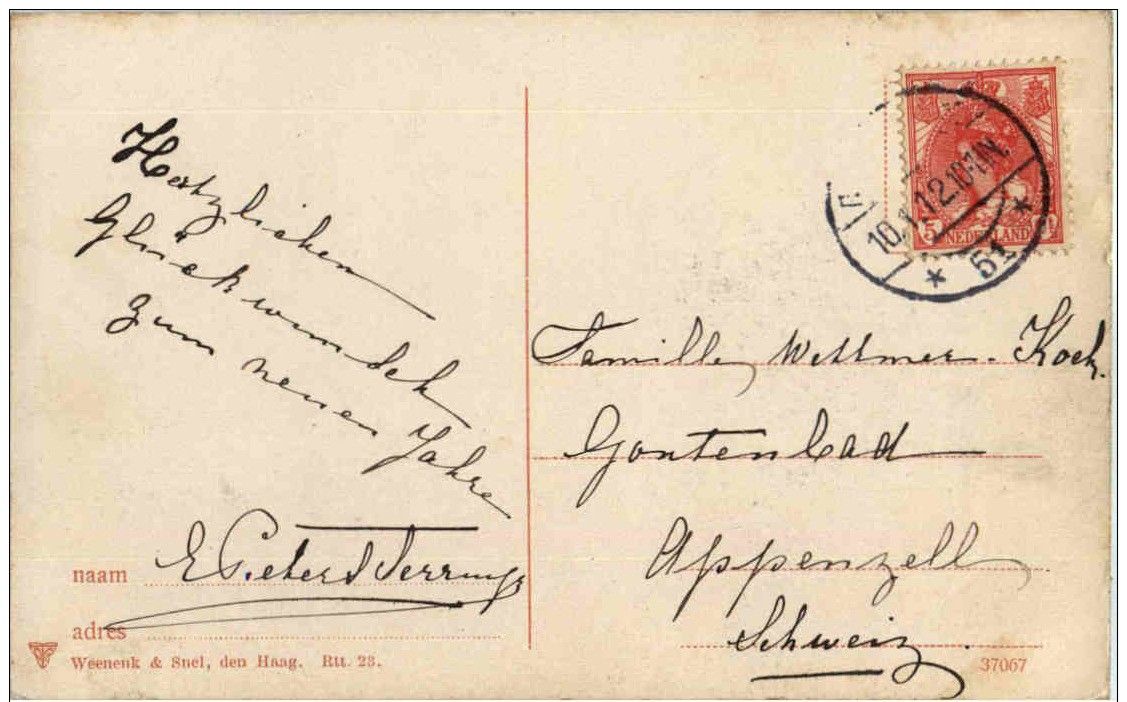 Hertzlichen
Glückwunsch
zum neuen
Jahre
E Pieters
naam
adres
Weenenk & Snel, den Haag. Rtt. 23.
5
NEDERLAND
10.1.12.10-11N.
* 51 *
Famille Wettmer-Koch.
Gontenbad
Appenzell
Schweiz
37067